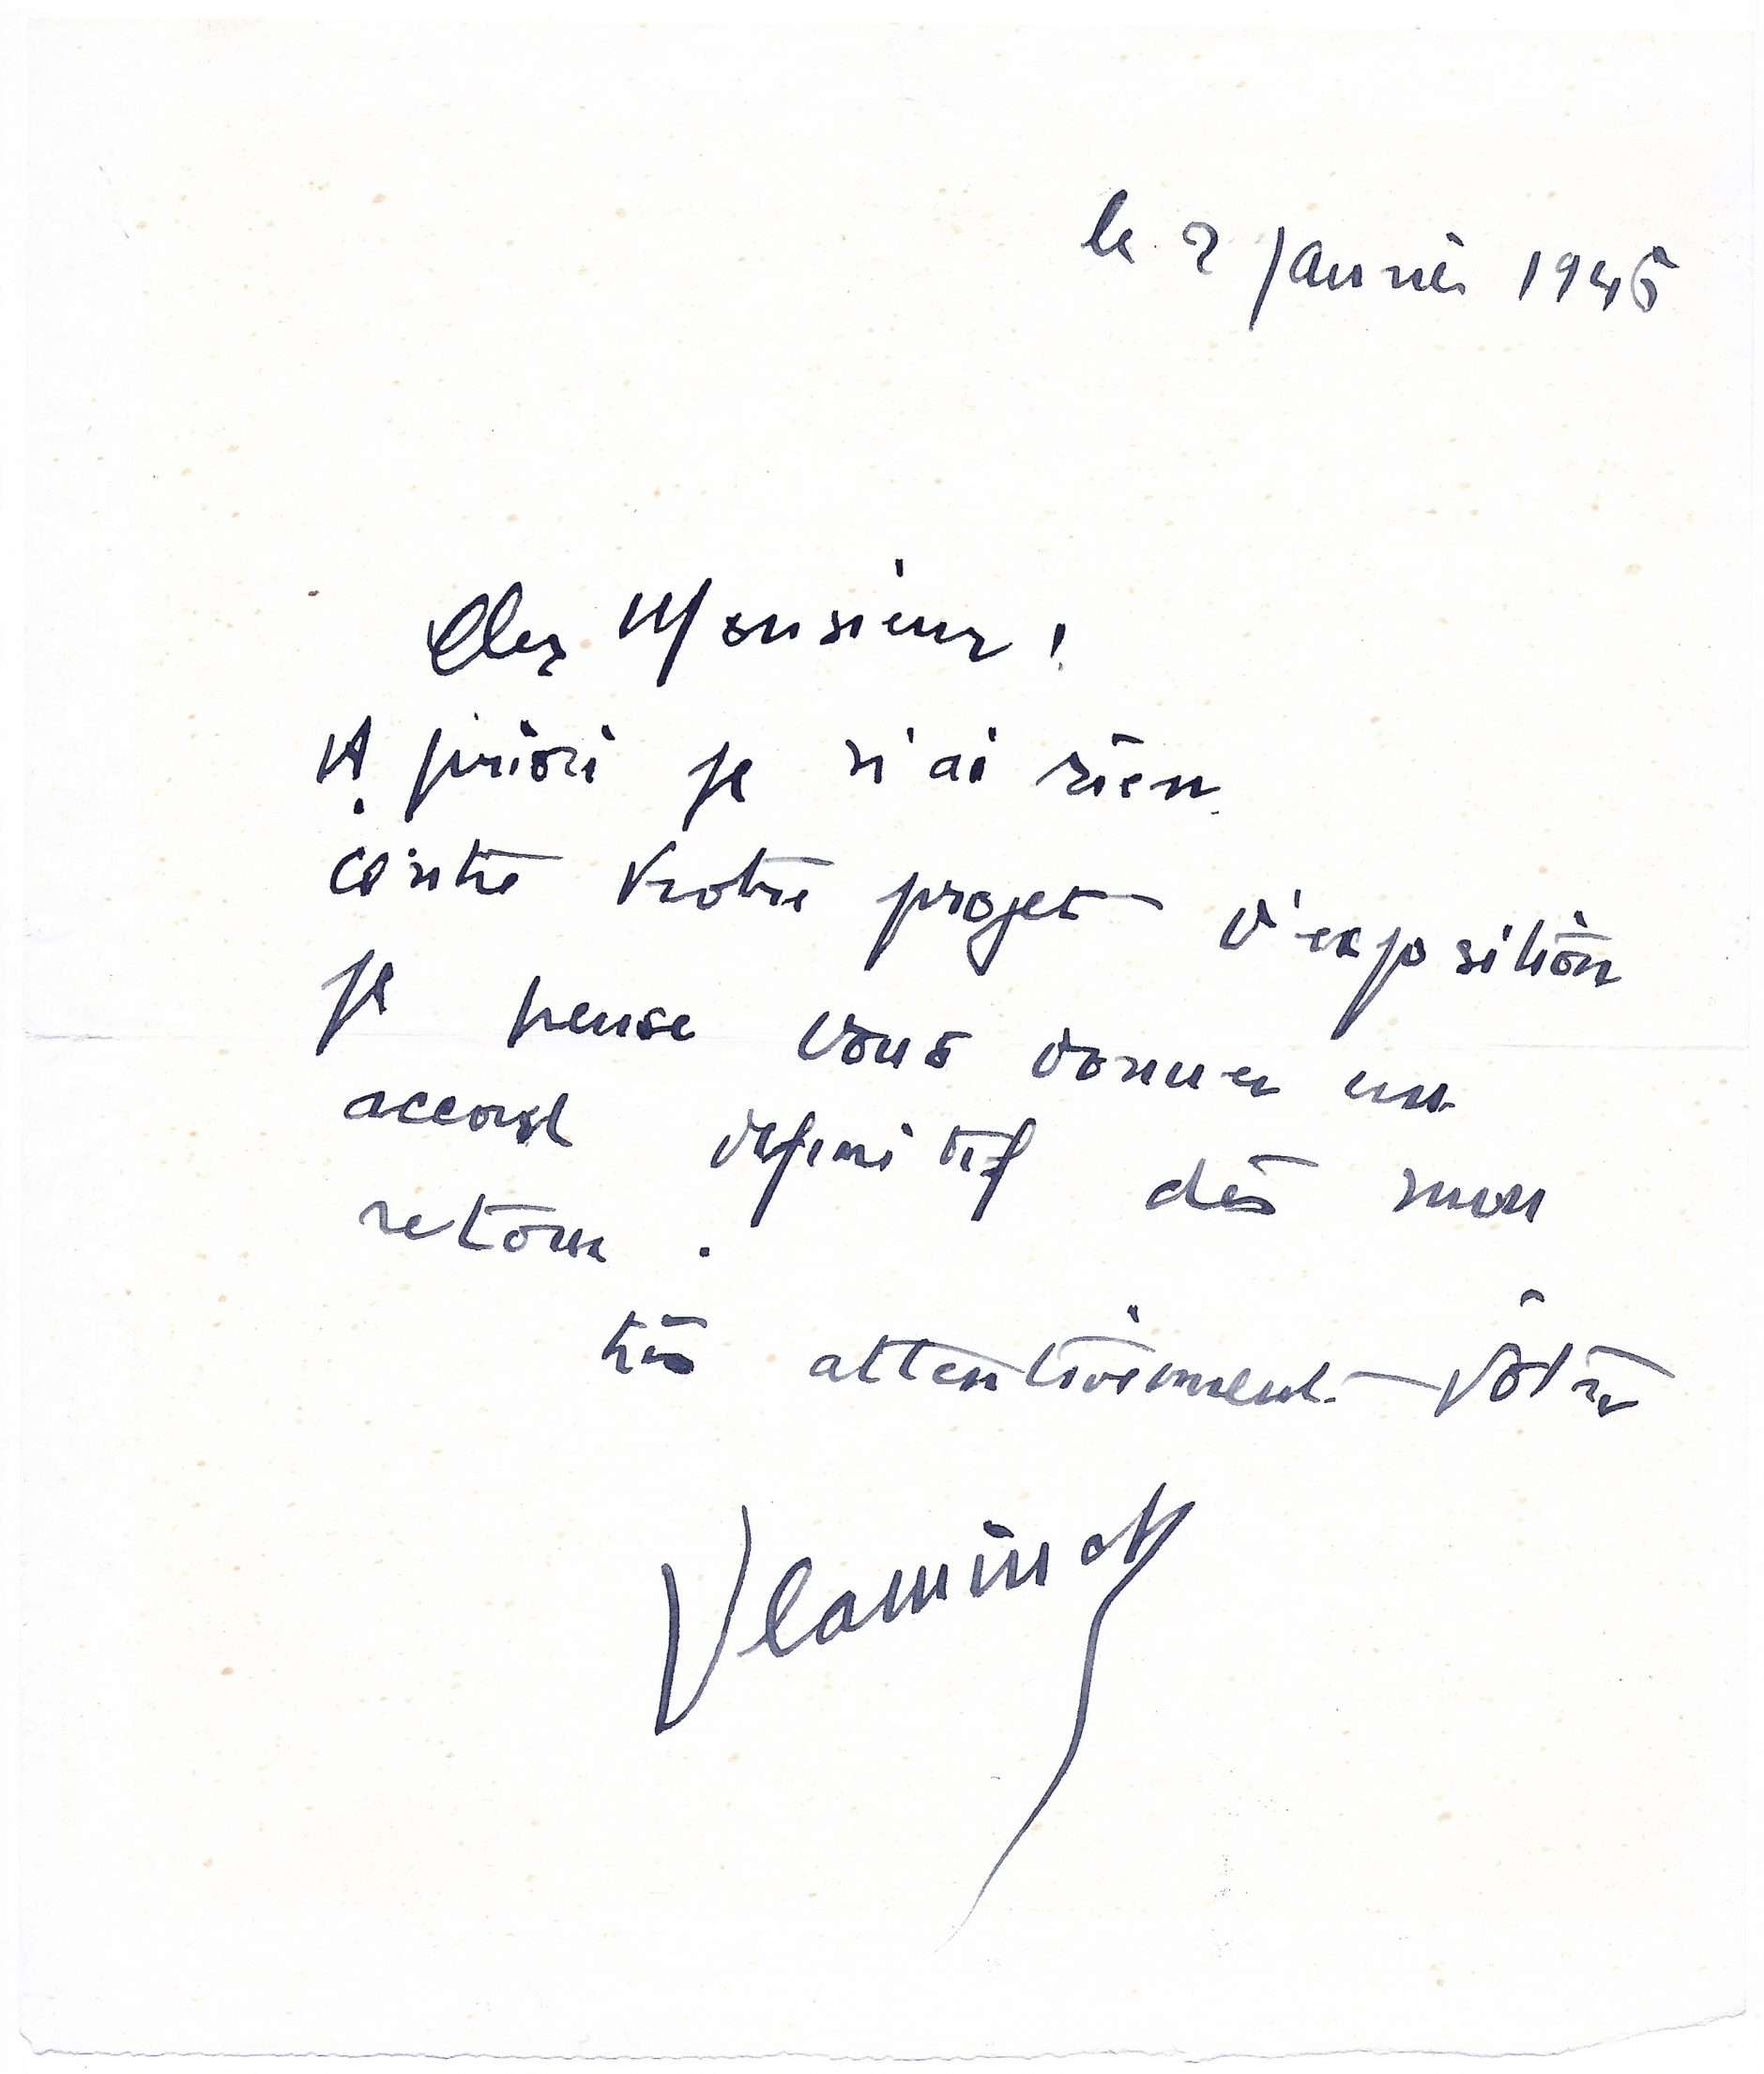 le 2 Janvier 1945
Cher Monsieur !
A priori je n'ai rien
contre votre projet d'exposition
je pense vous donner un
accord définitif dès mon
retour .
très attentivement vôtre
Vlaminck